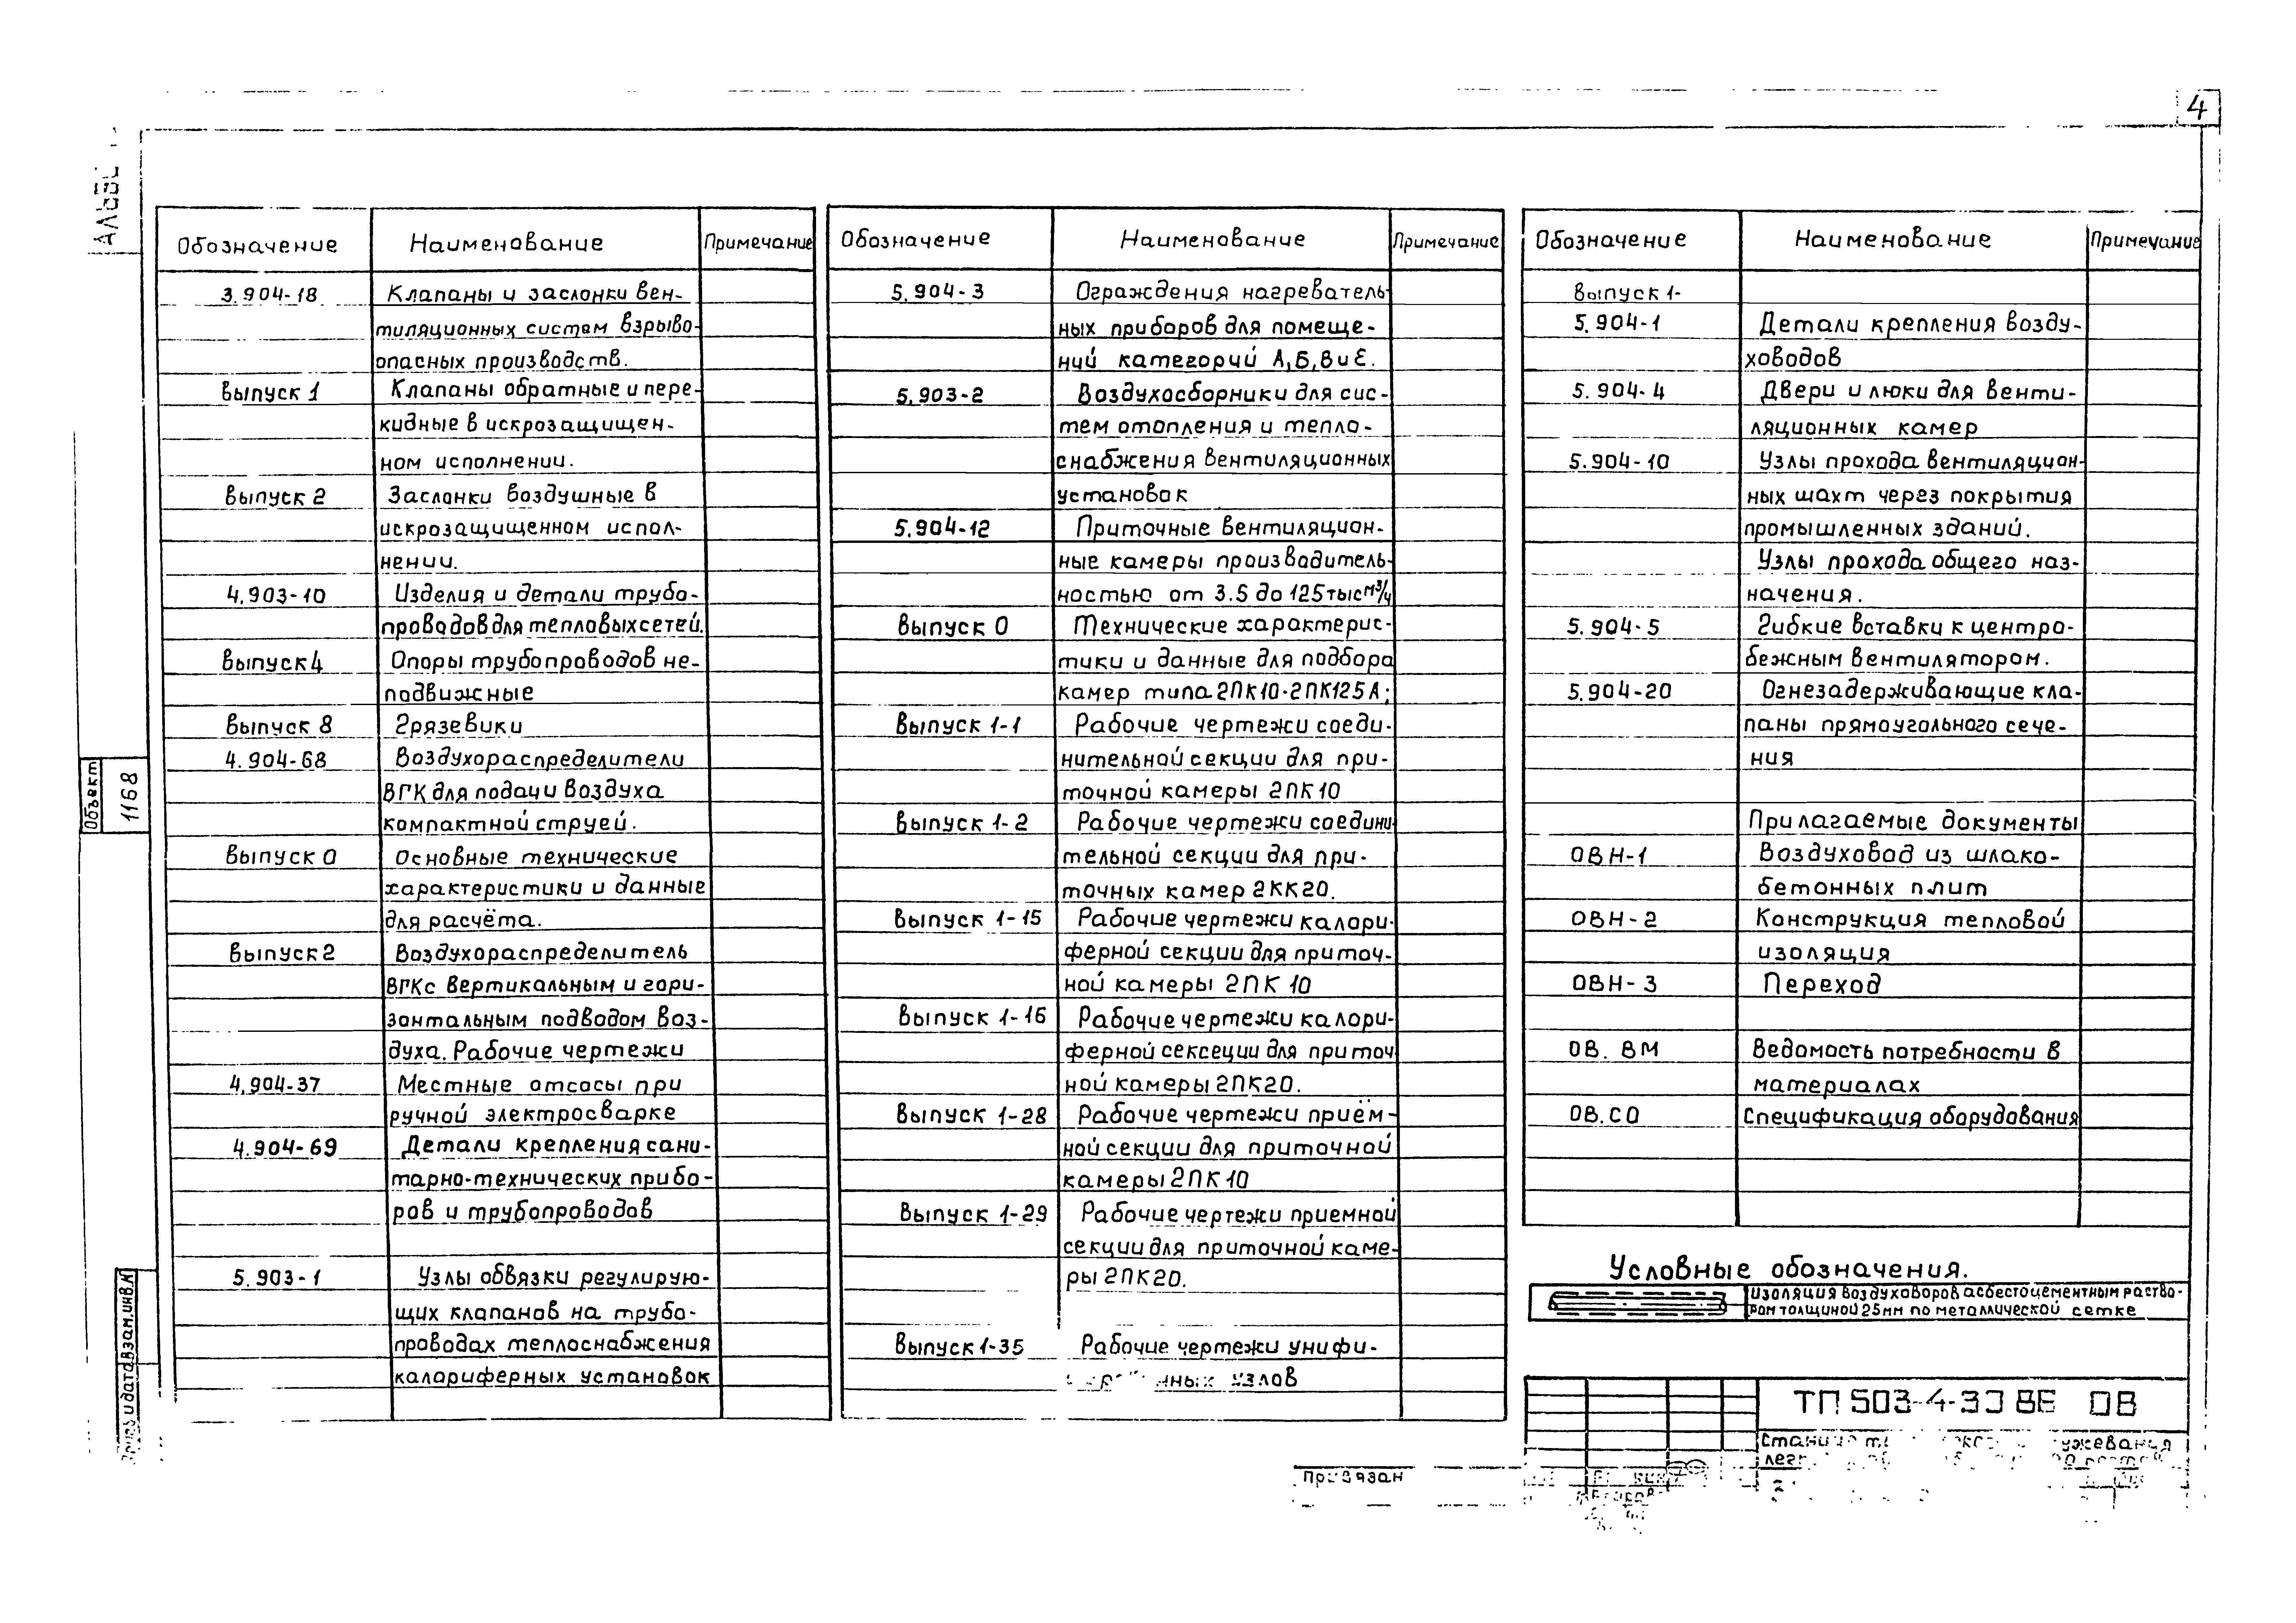 4
Обозначение Наименование Примечание
3.904-18 Клапаны и заслонки вен-
тиляционных систем взрыво-
опасных производств.
выпуск 1 Клапаны обратные и пере-
кидные в искрозащищен-
ном исполнении.
выпуск 2 Заслонки воздушные в
искрозащищенном испол-
нении.
4.903-10 Изделия и детали трубо-
проводов для тепловых сетей.
выпуск 4 Опоры трубопроводов не-
подвижные
выпуск 8 Грязевики
4.904-68 Воздухораспределители
ВГК для подачи воздуха
компактной струей.
выпуск 0 Основные технические
характеристики и данные
для расчёта.
выпуск 2 Воздухораспределитель
ВГКс вертикальным и гори-
зонтальным подводом воз-
духа. Рабочие чертежи
4.904-37 Местные отсосы при
ручной электросварке
4.904-69 Детали крепления сани-
тарно-технических прибо-
ров и трубопроводов
5.903-1 Узлы обвязки регулирую-
щих клапанов на трубо-
проводах теплоснабжения
калориферных установок
Обозначение Наименование Примечание
5.904-3 Ограждения нагреватель-
ных приборов для помеще-
ний категорий А,Б,В и Е.
5.903-2 Воздухосборники для сис-
тем отопления и тепло-
снабжения вентиляционных
установок
5.904-12 Приточные вентиляцион-
ные камеры производитель-
ностью от 3.5 до 125 тыс м³/ч
выпуск 0 Технические характерис-
тики и данные для подбора
камер типа 2ПК10-2ПК125А;
выпуск 1-1 Рабочие чертежи соеди-
нительной секции для при-
точной камеры 2ПК10
выпуск 1-2 Рабочие чертежи соедини
тельной секции для при-
точных камер 2КК20.
выпуск 1-15 Рабочие чертежи калори-
ферной секции для приточ-
ной камеры 2ПК 10
выпуск 1-16 Рабочие чертежи калори-
ферной сексеции для приточ
ной камеры 2ПК20.
выпуск 1-28 Рабочие чертежи приём-
ной секции для приточной
камеры 2ПК10
выпуск 1-29 Рабочие чертежи приемной
секции для приточной каме-
ры 2ПК20.
выпуск 1-35 Рабочие чертежи унифи-
узлов
Обозначение Наименование Примечание
выпуск 1-
5.904-1 Детали крепления возду-
ховодов
5.904-4 Двери и люки для венти-
ляционных камер
5.904-10 Узлы прохода вентиляцион-
ных шахт через покрытия
промышленных зданий.
Узлы прохода общего наз-
начения.
5.904-5 Гибкие вставки к центро-
бежным вентилятором.
5.904-20 Огнезадерживающие кла-
паны прямоугольного сече-
ния
Прилагаемые документы
ОВН-1 Воздуховод из шлако-
бетонных плит
ОВН-2 Конструкция тепловой
изоляция
ОВН-3 Переход
ОВ. ВМ Ведомость потребности в
материалах
ОВ.СО Спецификация оборудования
Условные обозначения.
Изоляция воздуховоров асбестоцементным раство-
ром толщиной 25мм по металлической сетке
ТП 503-4-39 86 ОВ
Привязан
Объект
1168
взам.инв.N